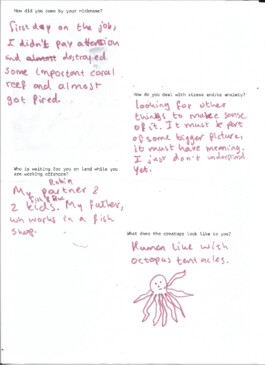 How did you come by your nickname?
First day on the job,
I didn't pay attention
and almost destroyed
some important coral
reef and almost
got fired.
How do you deal with stress and/or anxiety?
looking for other
things to make sense
of it. It must be part
of some bigger picture,
it must have meaning.
I just don't understand
yet.
Who is waiting for you on land while you
are working offshore?
Robin
My partner &
2 kids. My father,
who works in a fish
shop.
What does the creature look like to you?
Human like with
octopus tentacles.